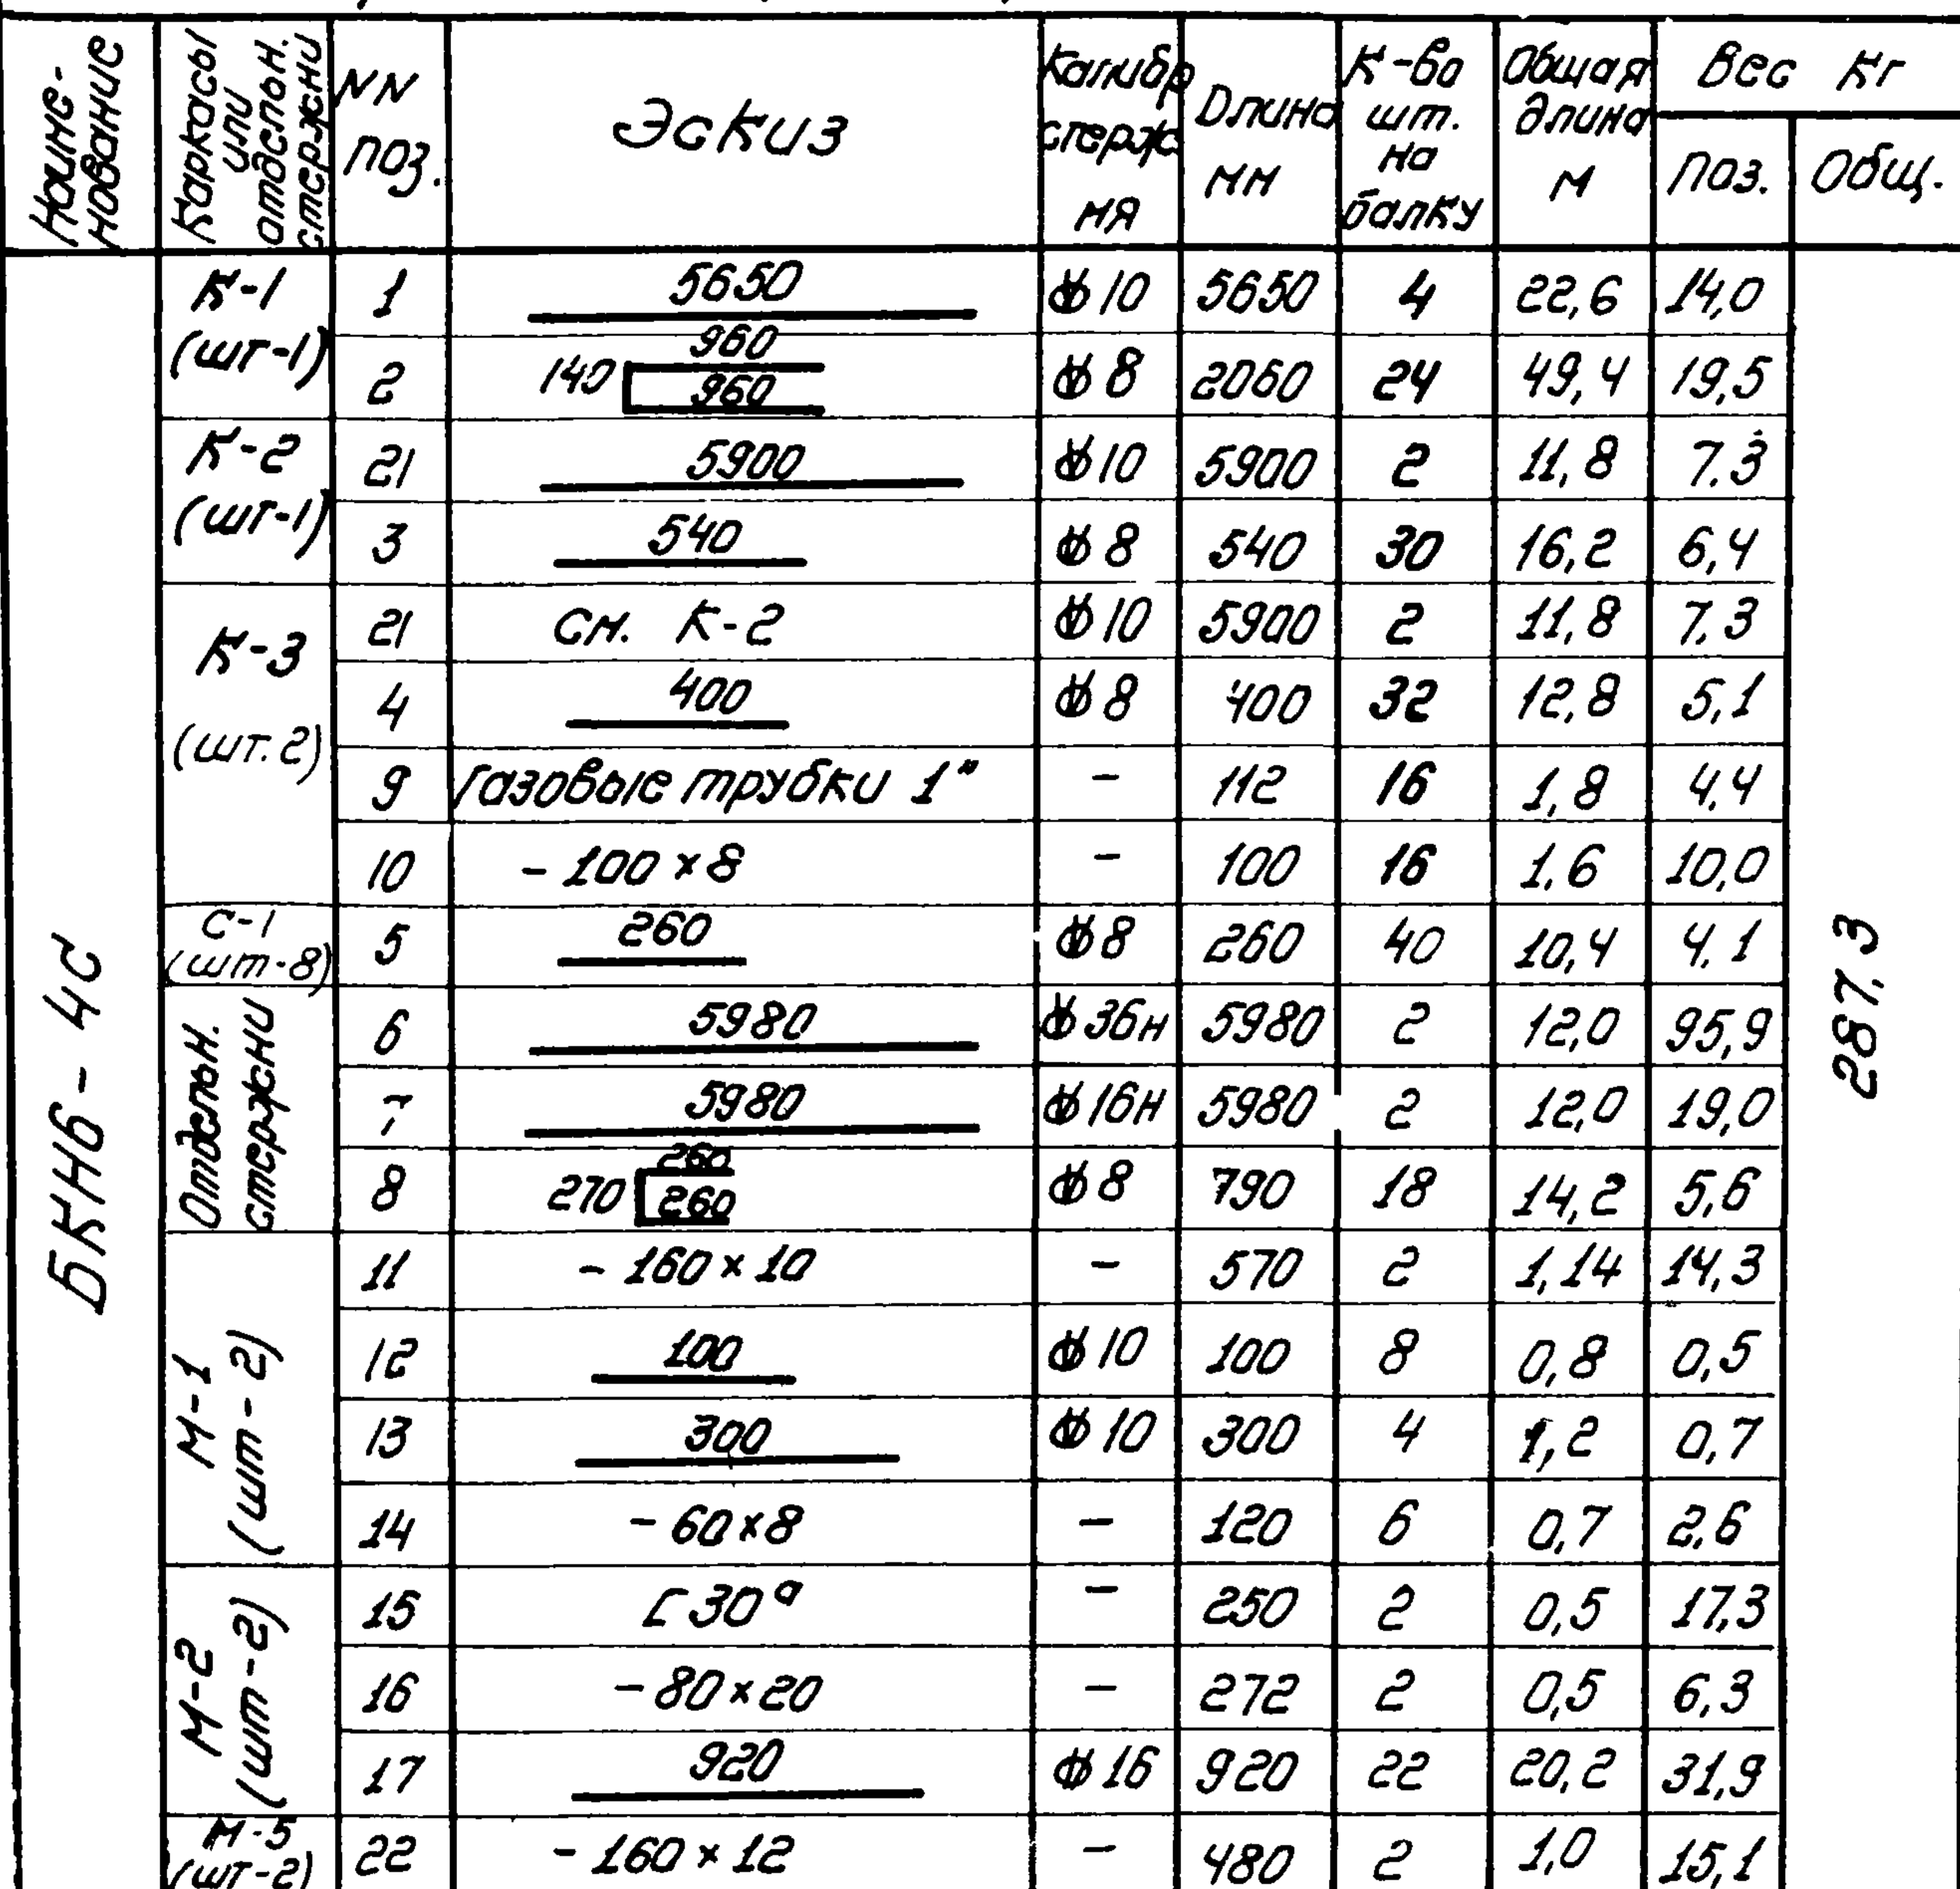 Наиме-
нование
Каркасы
или
отдельн.
стержни
NN
поз.
Эскиз
Калибр
стерж
ня
Длина
мм
К-во
шт.
на
балку
Общая
длина
м
Вес кг
поз.
Общ.
БКН6-4с
287,3
К-1
(шт-1)
1 5650 ⌀10 5650 4 22,6 14,0
960
2 140 960 ⌀8 2060 24 49,4 19,5
К-2
(шт-1)
21 5900 ⌀10 5900 2 11,8 7.3
3 540 ⌀8 540 30 16,2 6,4
К-3
(шт.2)
21 см. К-2 ⌀10 5900 2 11,8 7,3
4 400 ⌀8 400 32 12,8 5,1
9 Газовые трубки 1" - 112 16 1,8 4,4
10 - 100 × 8 - 100 16 1,6 10,0
С-1
(шт-8)
5 260 ⌀8 260 40 10,4 4,1
Отдельн.
стержни
6 5980 ⌀36н 5980 2 12,0 95,9
7 5980 ⌀16н 5980 2 12,0 19,0
260
8 270 260 ⌀8 790 18 14,2 5,6
М-1
(шт-2)
11 - 160 × 10 - 570 2 1,14 14,3
12 100 ⌀10 100 8 0,8 0,5
13 300 ⌀10 300 4 1,2 0,7
14 - 60×8 - 120 6 0,7 2,6
М-2
(шт-2)
15 [30а - 250 2 0,5 17,3
16 - 80 × 20 - 272 2 0,5 6,3
17 920 ⌀16 920 22 20,2 31,9
М-5
(шт-2)
22 - 160 × 12 - 480 2 1,0 15,1